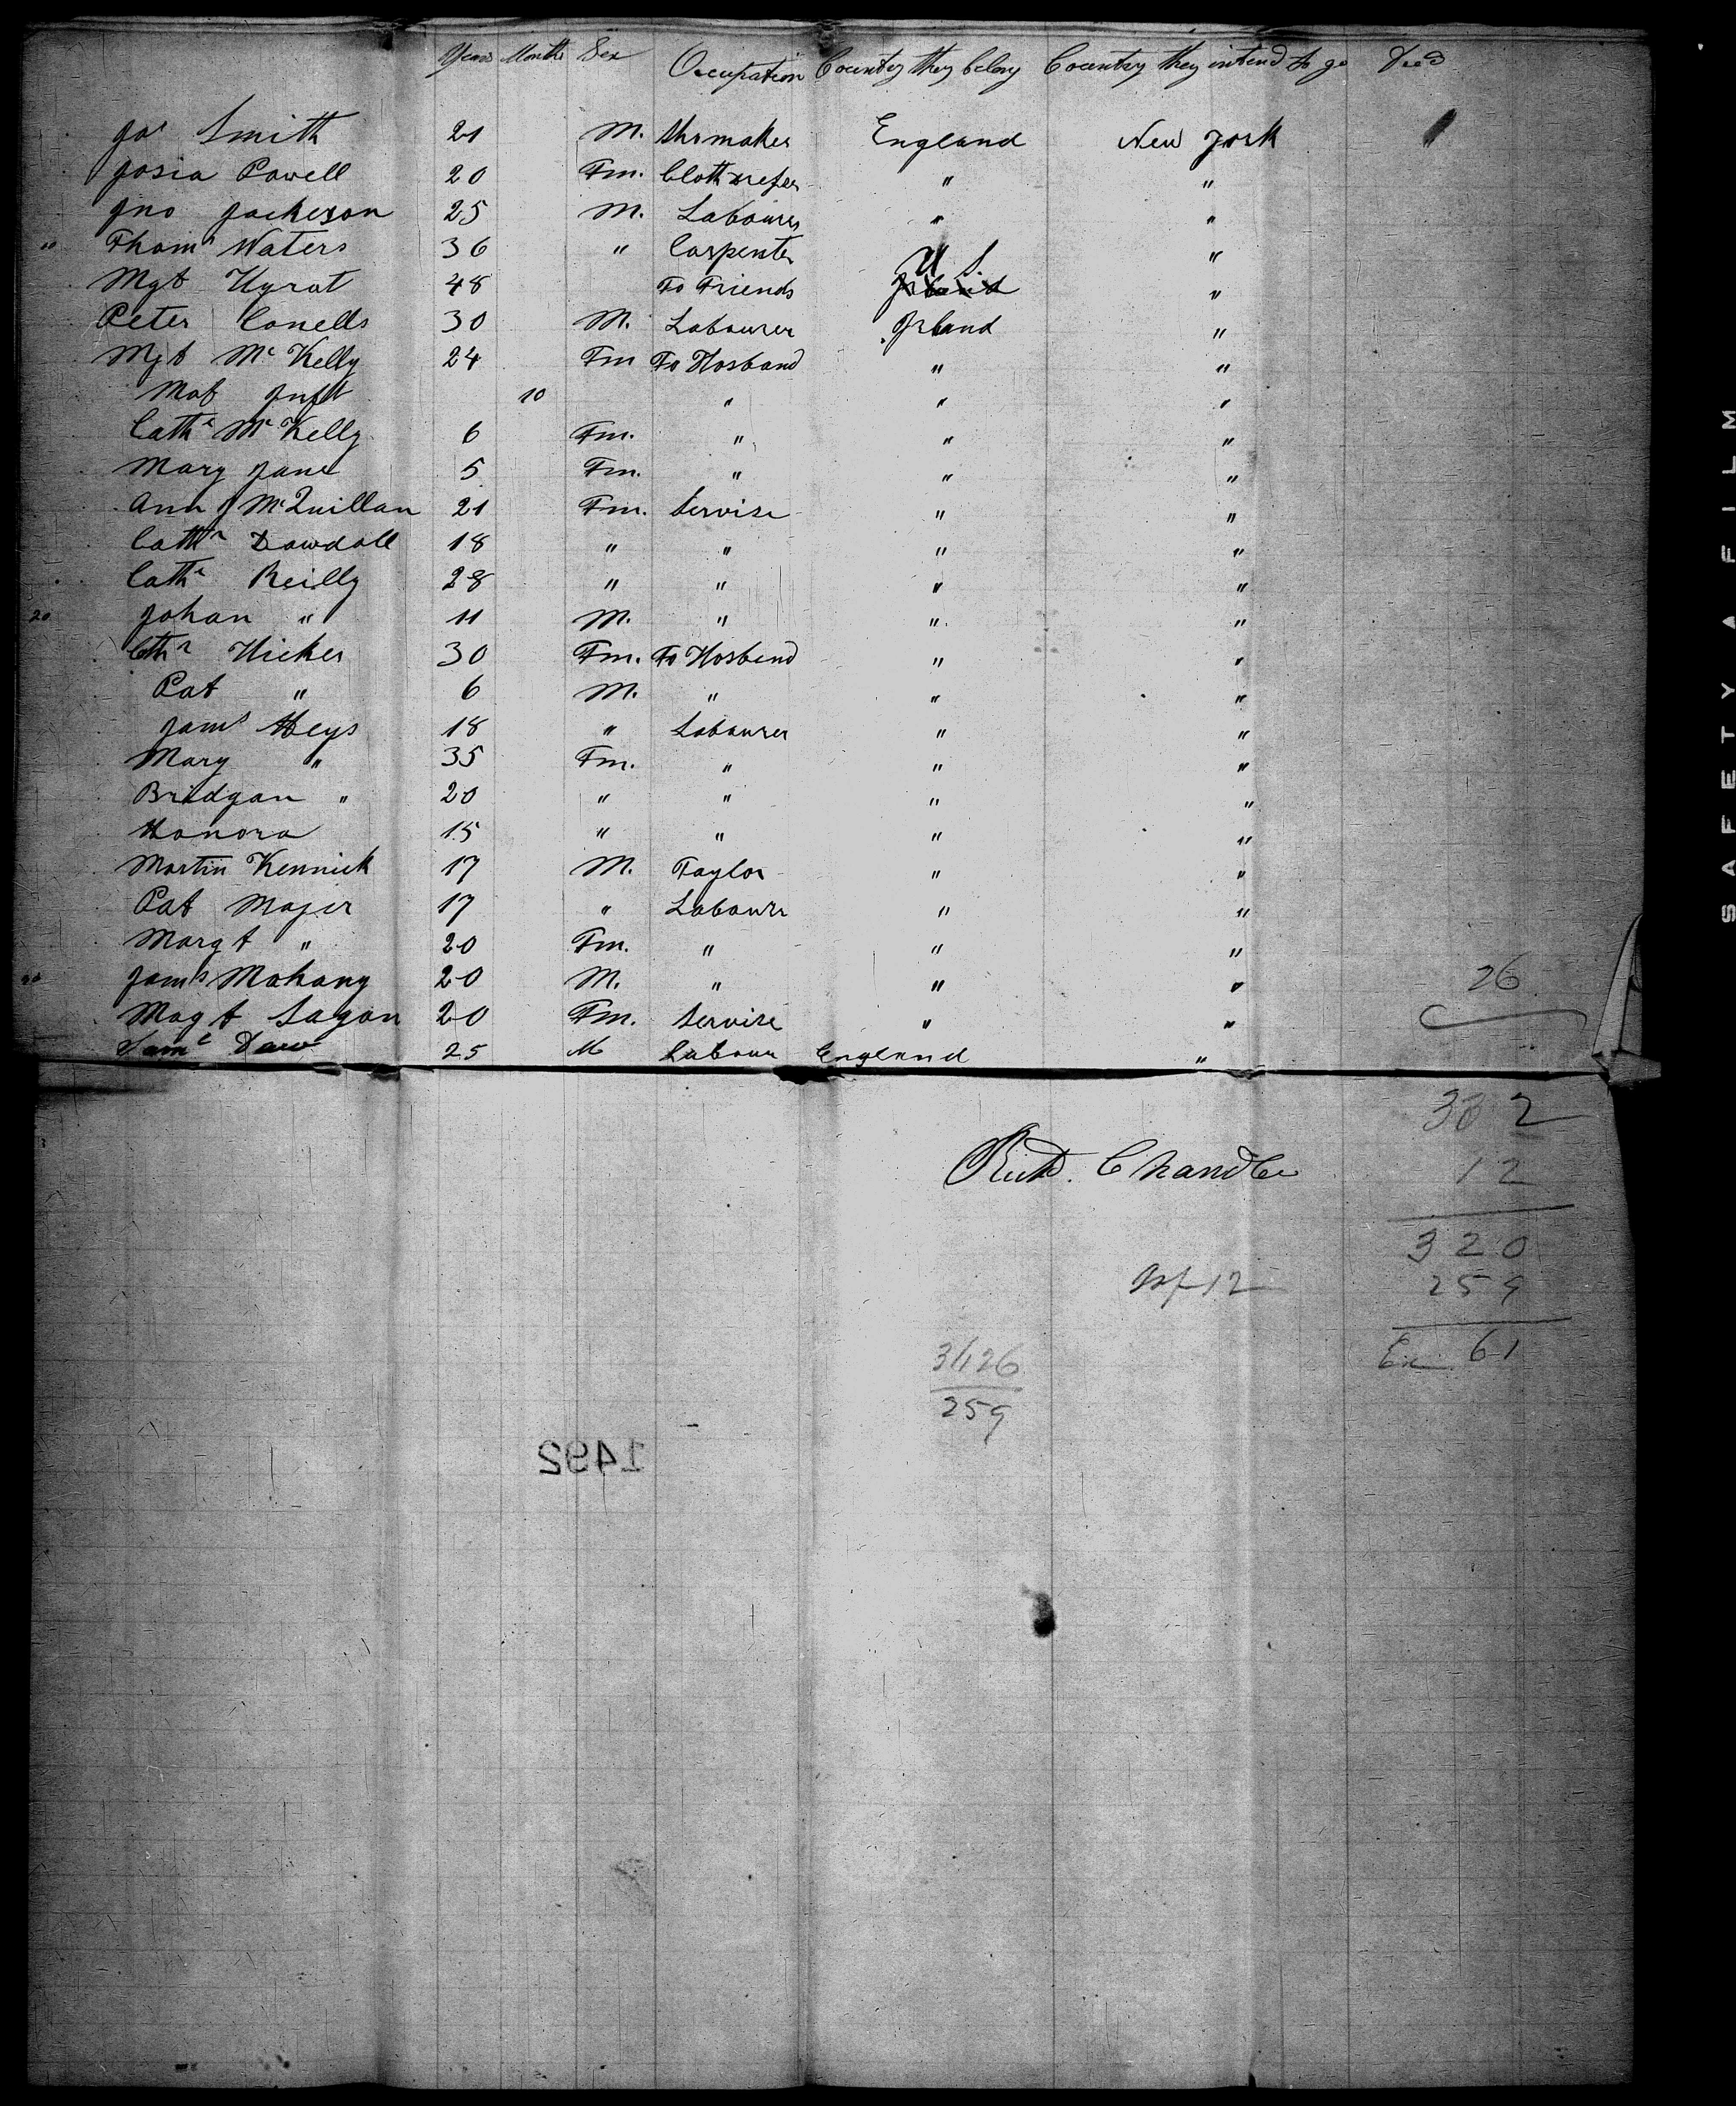 Years Months Sex Occupation Country they belong Country they intend to go Died
Jas Smith 21 M. Shomaker England New York
Josia Powell 20 Fm. Cloth " "
Jno Jackeson 25 M. Labourer " "
Thoms Waters 36 " Carpenter U S. "
Mgt Hyrat 48 To Friends Irland "
Peter Conells 30 M. Labourer Irland "
Mgt Mc Kelly 24 Fm To Hosband " "
Mat Inft 10 " " "
Cathe Mc Kelly 6 Fm. " " "
Mary Jane 5 Fm. " " "
Ann J McQuillan 21 Fm. Servise " "
Cathn Dowdall 18 " " " "
Cathe Reilly 28 " " " "
20 Johan " 11 M. " " "
Cthn Hickes 30 Fm. To Hosband " "
Pat " 6 M. " " "
Jams Heys 18 " Labourer " "
Mary " 35 Fm. " " "
Bridgan " 20 " " " "
Honora 15 " " " "
Martin Kennick 17 M. Taylor " "
Pat Majer 17 " Labourer " "
Margt " 20 Fm. " " "
Jams Mahony 20 M. " " " 26
Magt Sagan 20 Fm. Servise " "
Saml Daw 25 M Labour England "
302
Richd. Chandler
12
320
Inf 12
259
Ex 61
3426
259
1492
SAFETY FILM